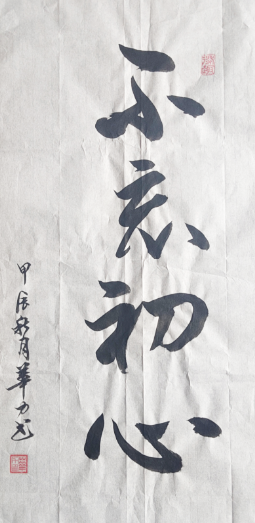 不忘初心
甲辰秋月華力书